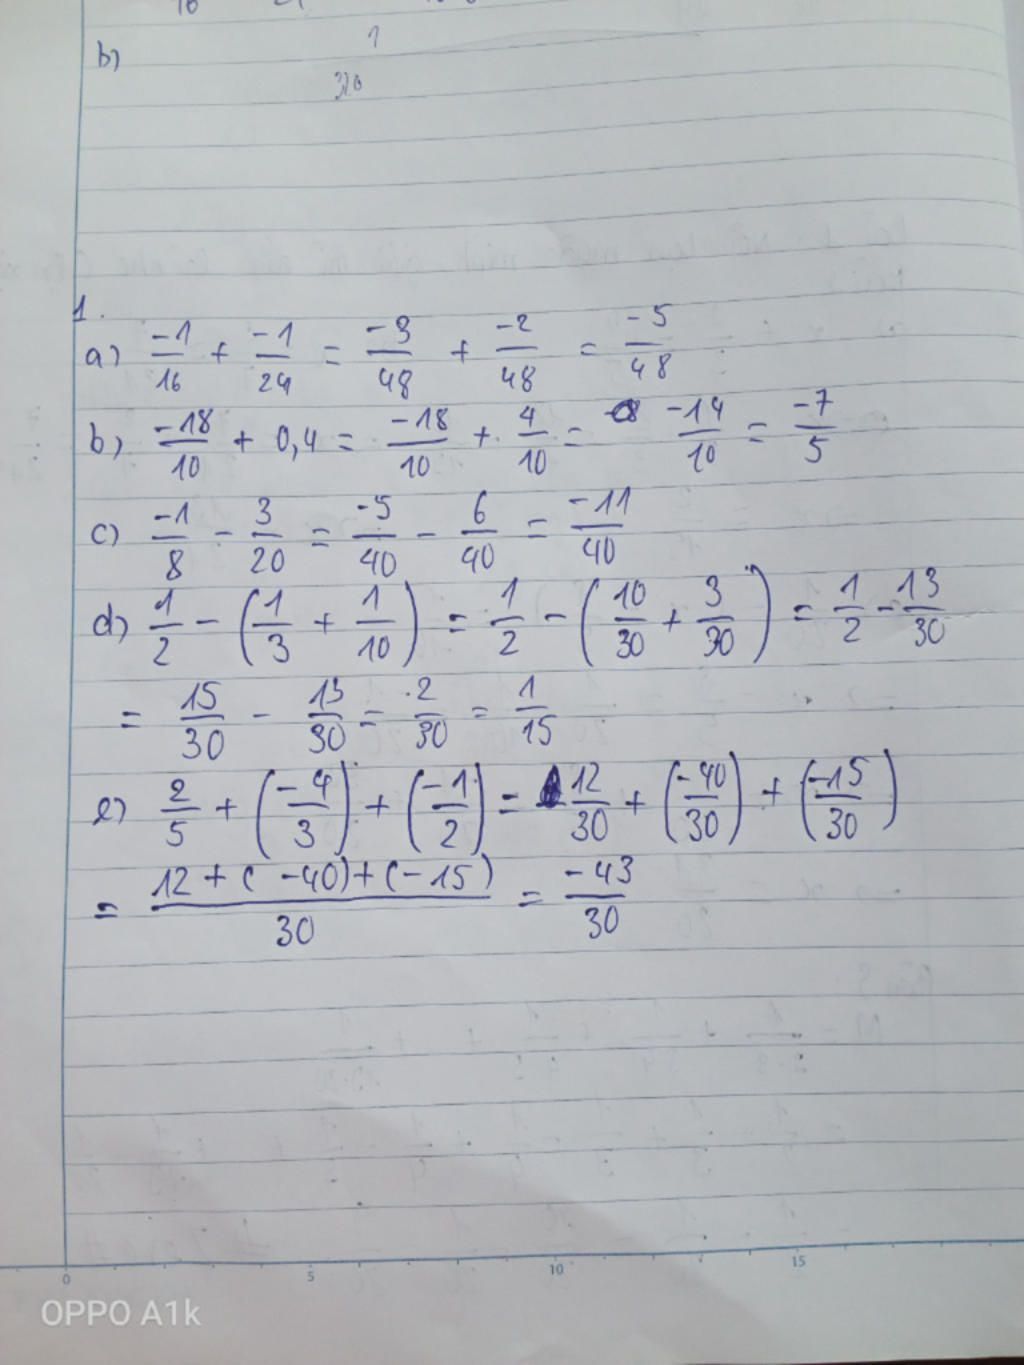 b)
1.
a) -1/16 + -1/24 = -3/48 + -2/48 = -5/48
b) -18/10 + 0,4 = -18/10 + 4/10 = -14/10 = -7/5
c) -1/8 - 3/20 = -5/40 - 6/40 = -11/40
d) 1/2 - (1/3 + 1/10) = 1/2 - (10/30 + 3/30) = 1/2 - 13/30
= 15/30 - 13/30 = 2/30 = 1/15
e) 2/5 + (-4/3) + (-1/2) = 12/30 + (-40/30) + (-15/30)
= 12 + (-40) + (-15)/30 = -43/30
0 5 10 15
OPPO A1k